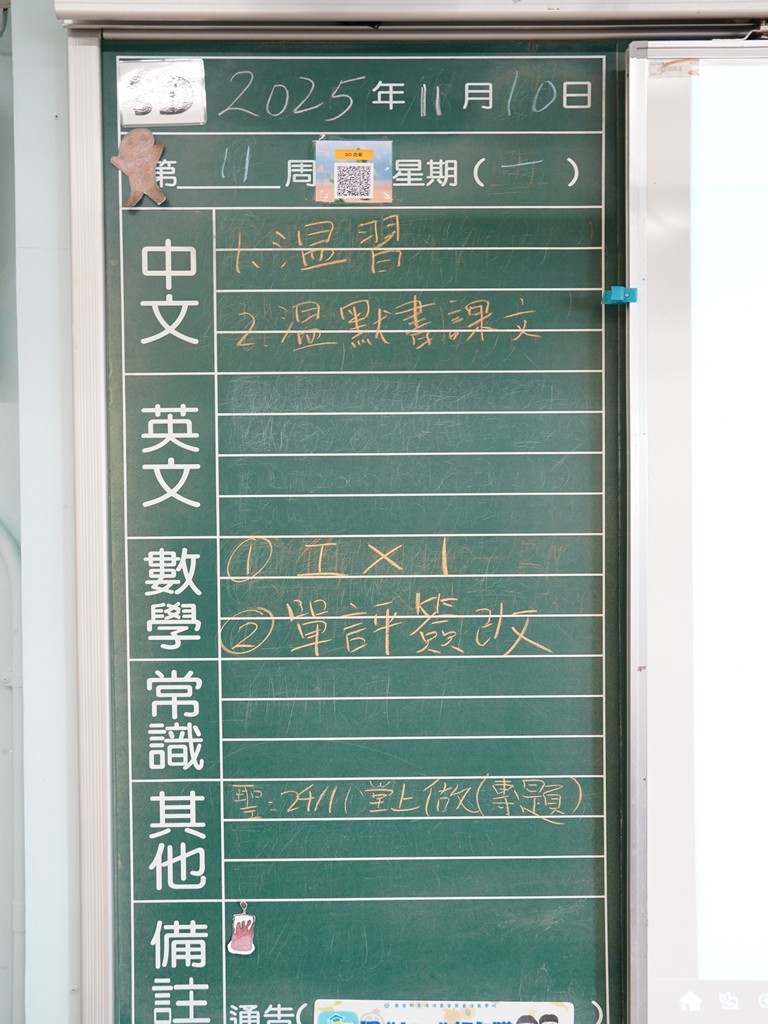 5D 2025年11月10日
第 11 周 星期(一)
中文
1. 溫習
2. 溫默書課文
英文
數學
① 工×1
② 單評簽改
常識
其他
聖:24/11堂上做(專題)
備註
通告( )